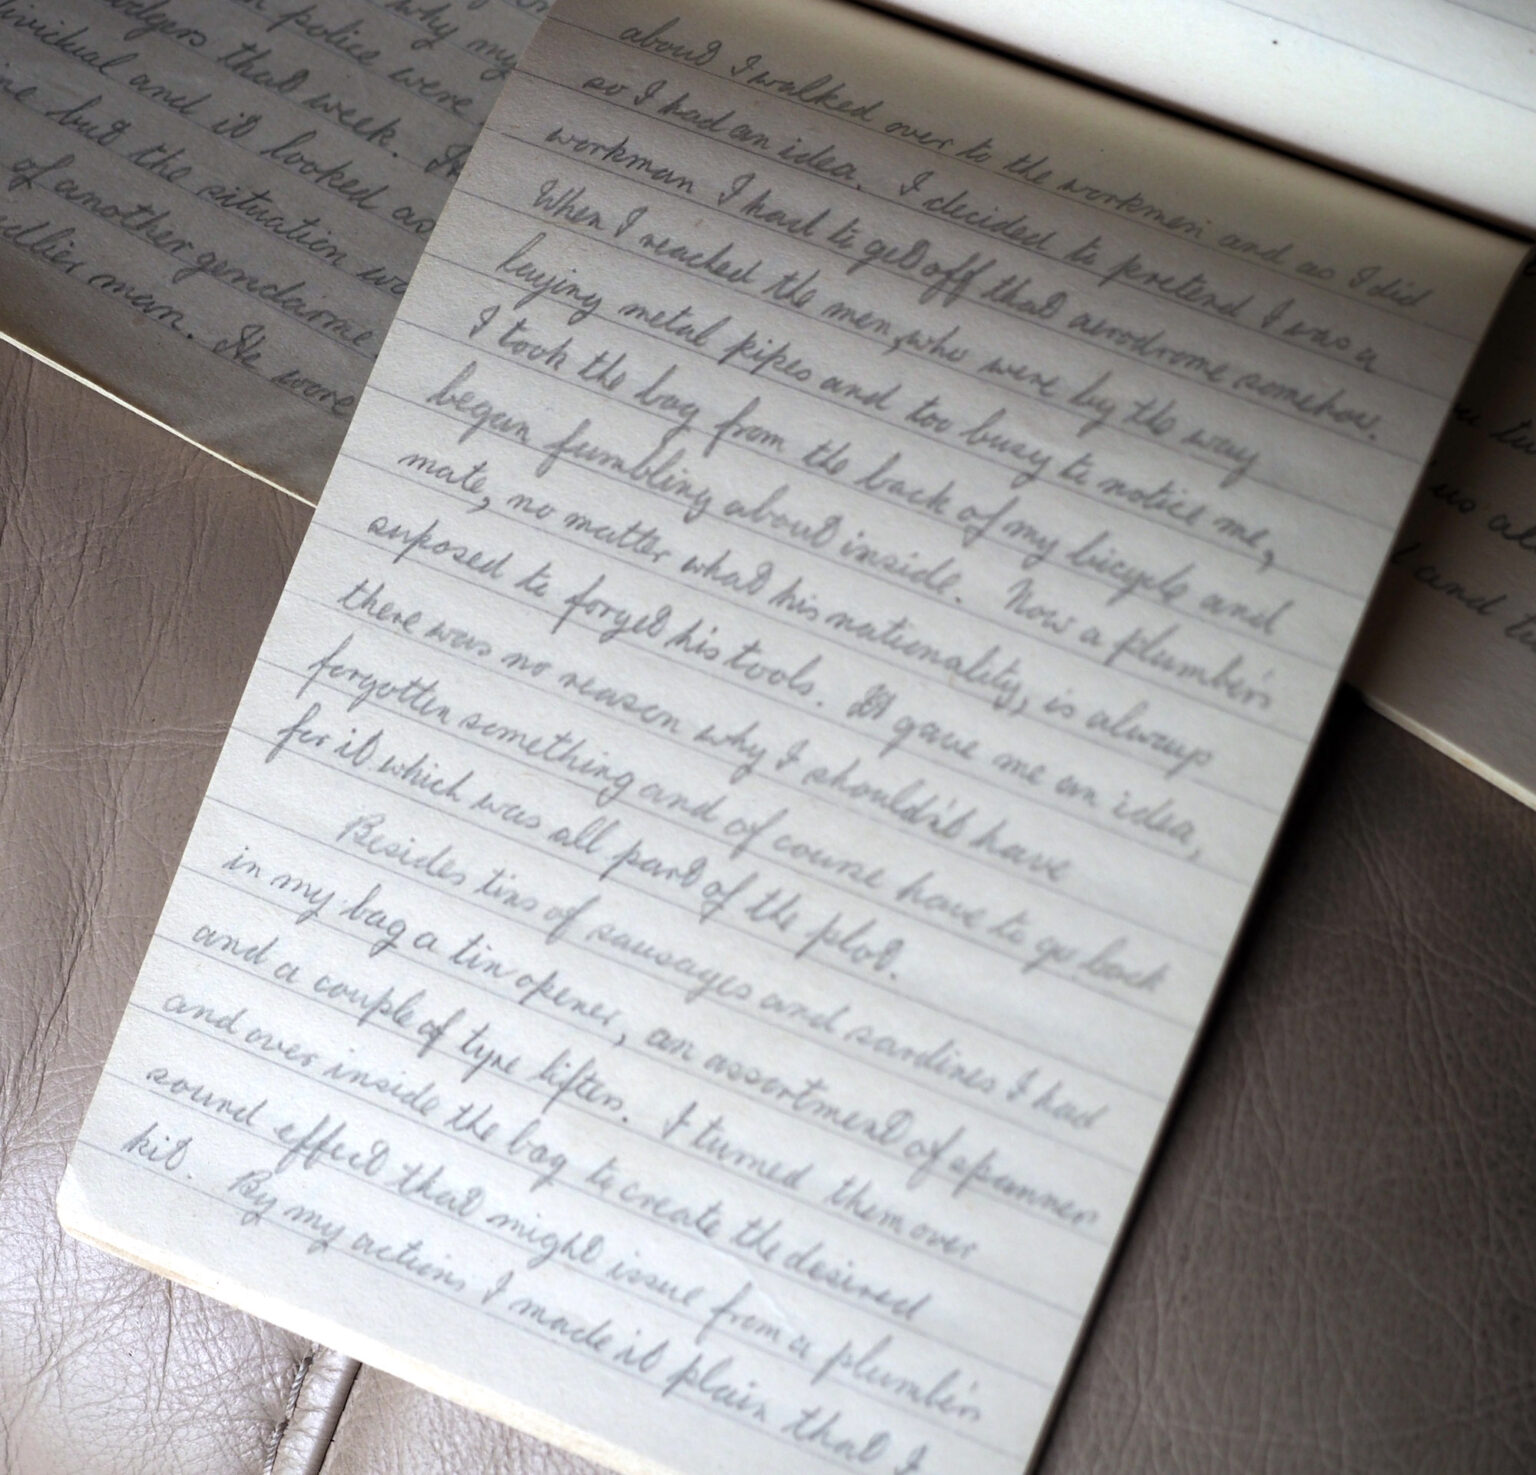 why my
police were
lodgers that week. He
ividual and it looked as
me but the situation wo
of another gendarme
man. He wore
about I walked over to the workmen and as I did
so I had an idea. I decided to pretend I was a
workman I had to get off that aerodrome somehow.
When I reached the men, who were by the way
laying metal pipes and too busy to notice me,
I took the bag from the back of my bicycle and
began fumbling about inside. Now a plumber's
mate, no matter what his nationality, is always
suposed to forget his tools. It gave me an idea,
there was no reason why I shouldn't have
forgotten something and of course have to go back
for it which was all part of the plot.
Besides tins of sausages and sardines I had
in my bag a tin opener, an assortment of spanner
and a couple of tyre lifters. I turned them over
and over inside the bag to create the desired
sound effect that might issue from a plumber's
kit. By my actions I made it plain that I
us
and